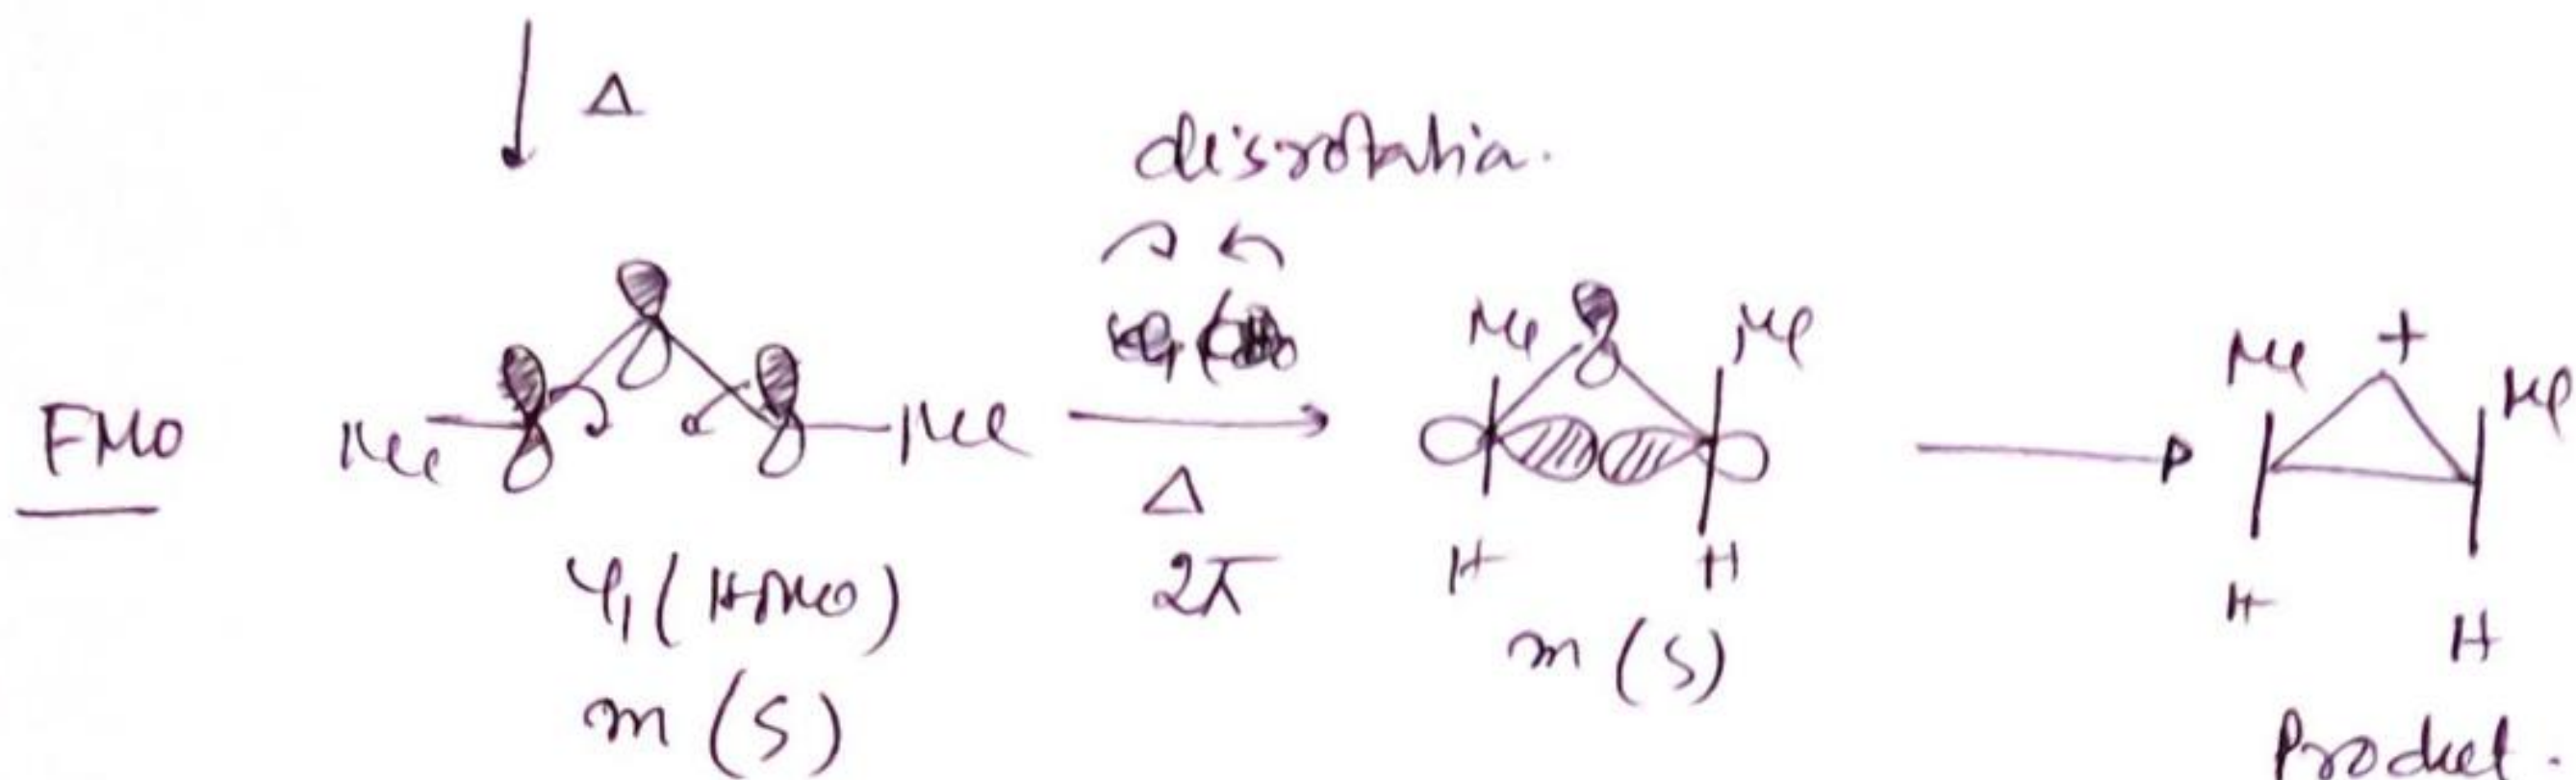 Δ
disrotatia.
FMO
Me
Me
Δ
2π
Ψ1 (HOMO)
m (S)
Me
Me
H
H
m (S)
Me
+
Me
H
H
Product.